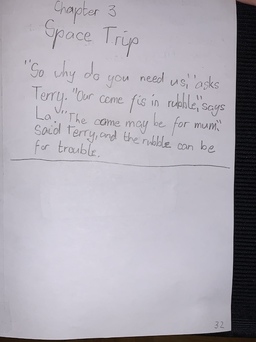 Chapter 3
Space Trip
"So why do you need us," asks
Terry. "Our come is in rubble," says
La. "The come may be for mum,"
said Terry, and the rubble can be
for trouble.
32